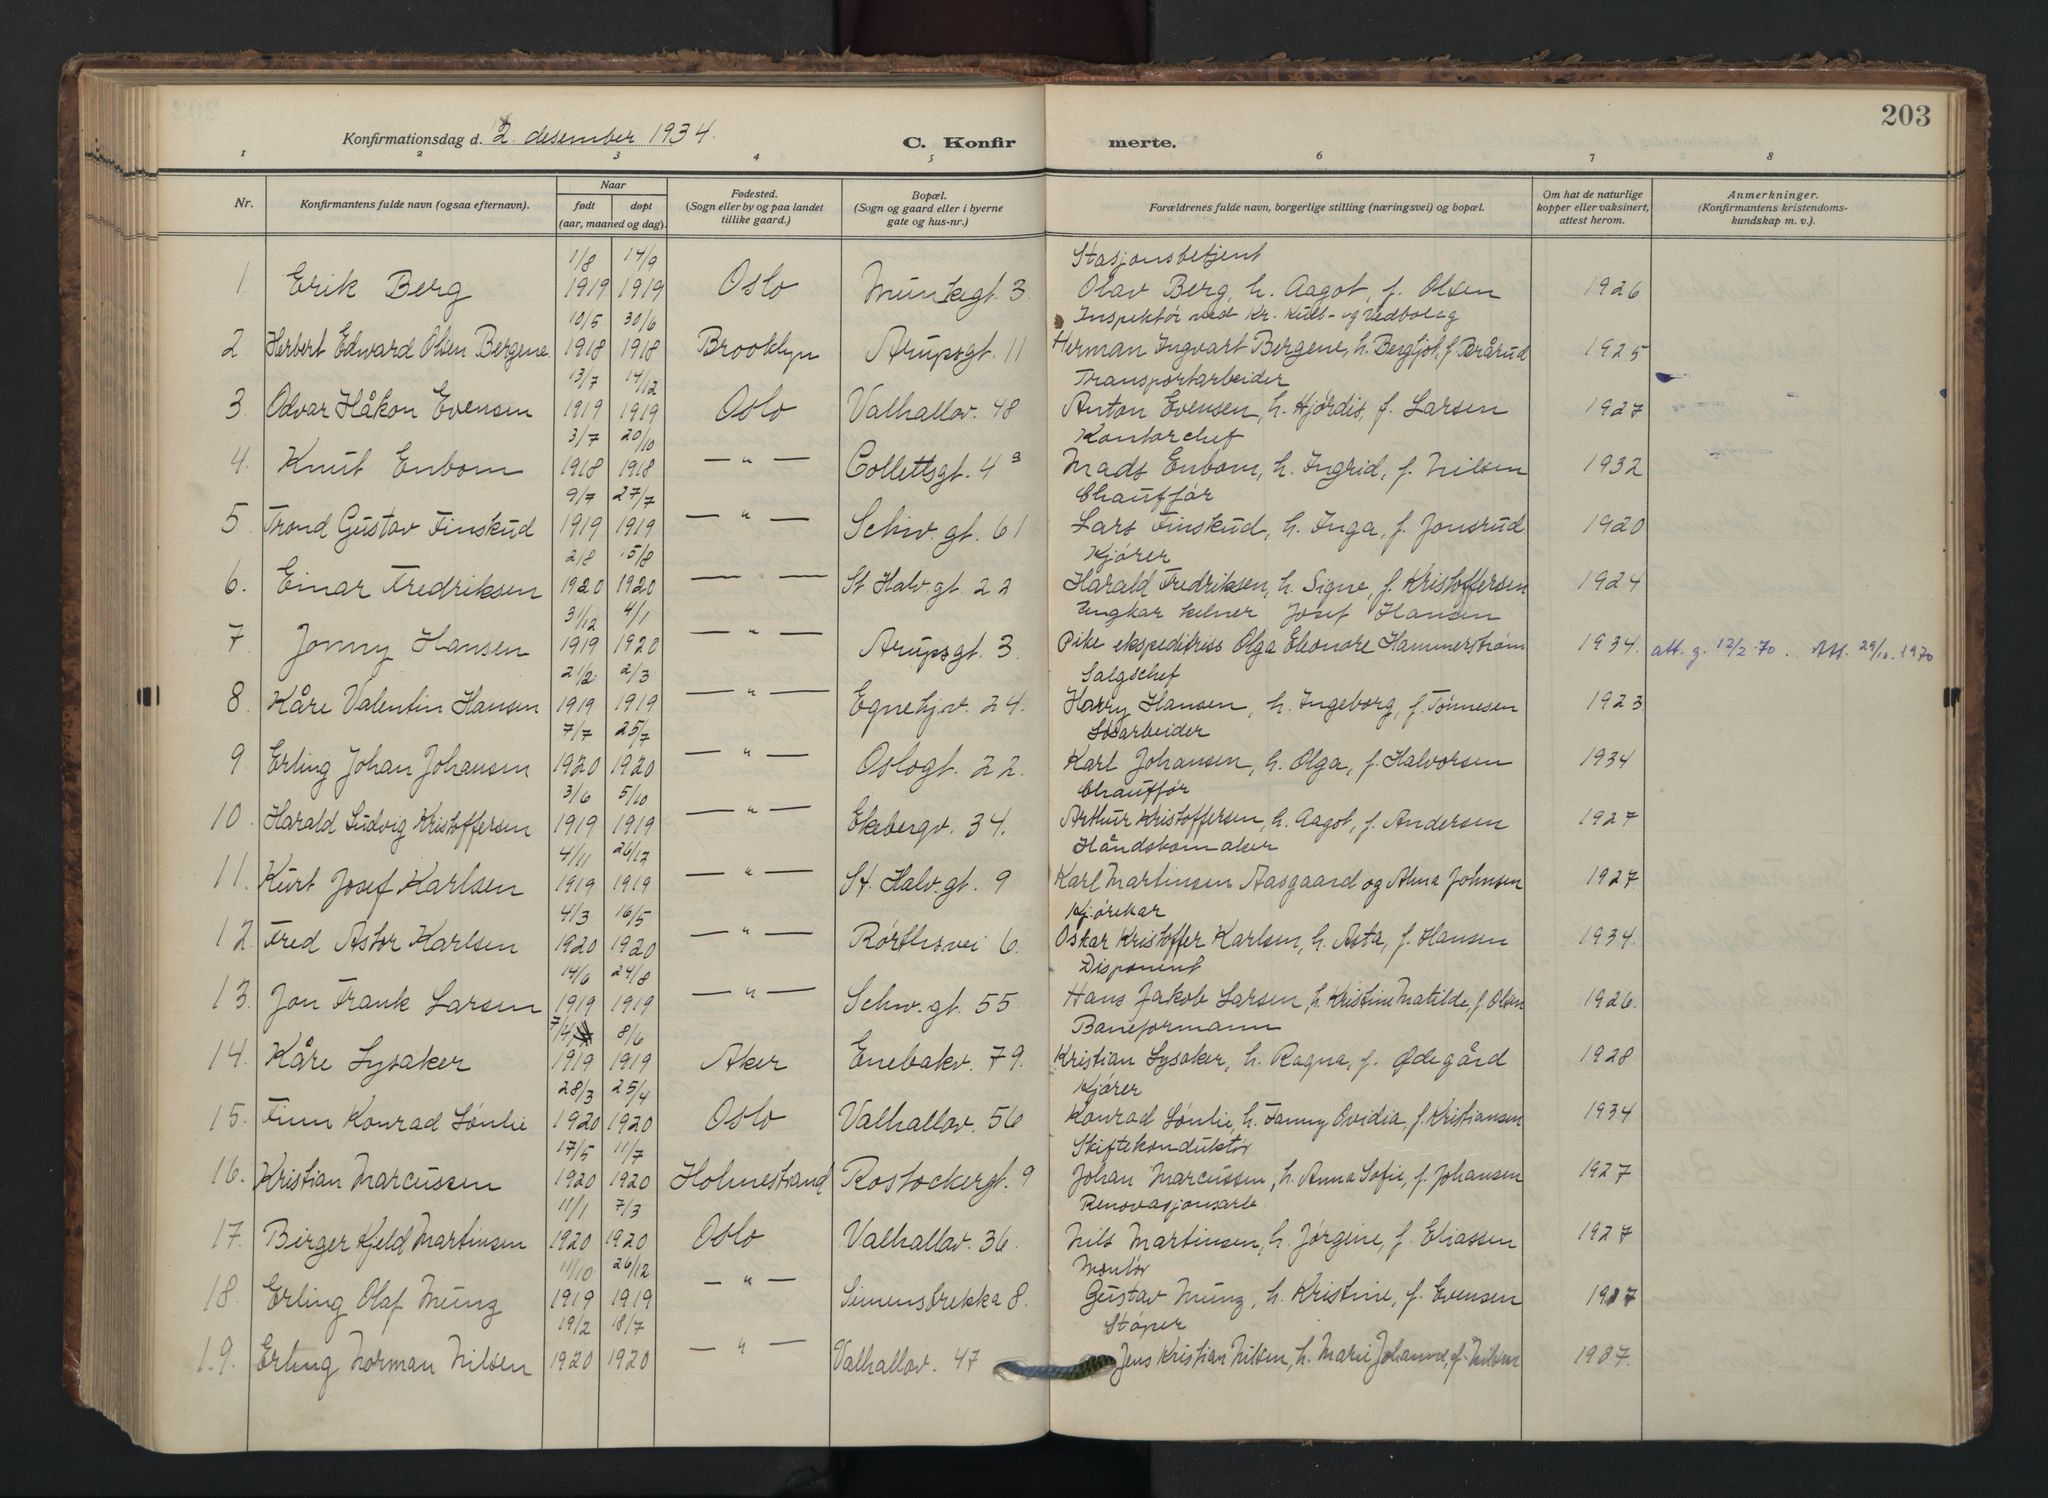 203
Konfirmationsdag d. 2. desember 1934. C. Konfir merte.
1 2 3 4 5 6 7 8
Nr. Konfirmantens fulde navn (ogsaa efternavn). Naar født døpt (aar, maaned og dag). Fødested. (Sogn eller by og paa landet tillike gaard.) Bopæl. (Sogn og gaard eller i byerne gate og hus-nr.) Forældrenes fulde navn, borgerlige stilling (næringsvei) og bopæl. Om hat de naturlige kopper eller vaksinert, attest herom. Anmerkninger. (Konfirmantens kristendoms-kundskap m. v.).
1/8 14/9 Stasjonsbetjent
1. Erik Berg 1919 1919 Oslo Munkegt. 3. Olav Berg, h. Aagot, f. Olsen 1926
10/5 30/6 Inspektør ved Kr. Kull- og Vedbolag
2 Herbert Edward Olsen Bergene 1918 1918 Brooklyn Arupsgt. 11 Herman Ingvart Bergene, h. Bergljot, f. Brårud 1925
13/7 14/12 Transportarbeider
3. Odvar Håkon Evensen 1919 1919 Oslo Valhallav. 48 Anton Evensen, h. Hjørdis, f. Larsen 1927
3/7 20/10 Kontorchef
4. Knut Enbom 1918 1918 — " — Collettsgt. 4a Mads Enbom, h. Ingrid, f. Nilsen 1932
9/7 27/7 Chauffør
5 Trond Gustav Finskud 1919 1919 — " — Schw. gt. 61 Lars Finskud, h. Inga, f. Jonsrud 1920
2/8 15/8 Kjører
6. Einar Fredriksen 1920 1920 — " — St Halv. gt. 22 Harald Fredriksen, h. Signe, f. Kristoffersen 1924
31/12 4/1 Ungkar kelner Josef Hansen
7 Jonny Hansen 1919 1920 — " — Arupsgt. 3. Pike ekspeditrise Olga Eleonore Hammerstrøm 1934. att. g. 12/2 70. Att. 29/10. 1970
21/2. 2/3 Salgschef
8. Kåre Valentin Hansen 1919 1919 — " — Egnehj.v. 24. Harry Hansen, h. Ingeborg, f. Tønnesen 1923
7/7 25/7 Løsarbeider
9. Erling Johan Johansen 1920 1920 — " — Oslogt. 22. Karl Johansen, h. Olga, f. Halvorsen 1934
3/6 5/10 Chauffør
10. Harald Ludvig Kristoffersen 1919 1919 — " — Ekebergv. 34. Arthur Kristoffersen, h. Aagot, f. Andersen 1927
4/11 26/12 Håndskomaker
11. Kurt Josef Karlsen 1919 1919 — " — St. Halv. gt. 9 Karl Martinsen Aasgaard og Alma Johnsen 1927
4/3 16/5 Kjørekar
12. Fred Astor Karlsen 1920 1920 — " — 6. Oskar Kristoffer Karlsen, h. Asta, f. Hansen 1934.
14/6 24/8 Disponent
13. Jon Frank Larsen 1919 1919 — " — Schw. gt. 55 Hans Jakob Larsen, h. Kristine Matilde, f. Olsen 1926.
7/4 8/6 Baneformann
14. Kåre Lysaker 1919 1919 Aker Enebakv. 79. Kristian Lysaker, h. Ragna, f. Ødegård 1928
28/3 25/4 Kjører
15. Finn Konrad Sønlie 1920 1920 Oslo Valhallav. 56 Konrad Sønlie, h. Fanny Ovidia, f. Kristiansen 1934
17/5 11/7 Skiftekonduktør
16. Kristian Marcussen 1920 1920 Holmestrand Rostockergt. 9 Johan Marcussen, h. Anna Sofie, f. Johansen 1927
11/1 7/3 Renovasjonsarb
17. Birger Kjeld Martinsen 1920 1920 Oslo Valhallav. 36. Nils Martinsen, h. Jørgine, f. Eliassen 1927
11/10 26/12 Montør
18. Erling Olaf Munz 1919 1919 — " — Simensbrekka 8. Gustav Munz, h. Kristine, f. Evensen
19/2 18/7 Støper
19. Erling Norman Nilsen 1920 1920 — " — Valhallav. 47 Jens Kristian Nilsen, h. Marie f. Nilsen